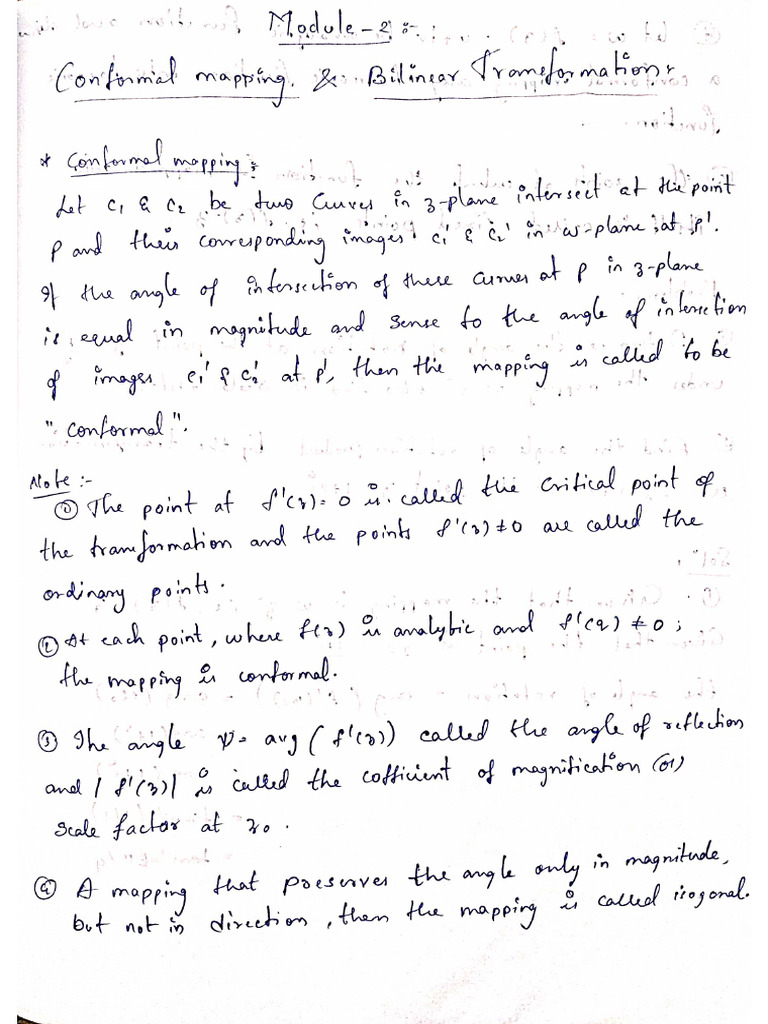 Module - 2 :-
Conformal mapping & Bilinear Transformation:
* Conformal mapping :
Let C1 & C2 be two Curves in z-plane intersect at the point
P and their corresponding images C1' & C2' in w-plane at P'.
If the angle of intersection of these curves at P in z-plane
is equal in magnitude and sense to the angle of intersection
of images C1' & C2' at P', then the mapping is called to be
"conformal".
Note :-
① The point at f'(z) = 0 is called the critical point of
the transformation and the points f'(z) ≠ 0 are called the
ordinary points.
② At each point, where f(z) is analytic and f'(z) ≠ 0 ;
the mapping is conformal.
③ The angle ψ = arg ( f'(z)) called the angle of reflection
and | f'(z)| is called the cofficient of magnification (or)
scale factor at z0 .
④ A mapping that preserves the angle only in magnitude,
but not in direction , then the mapping is called isogonal.